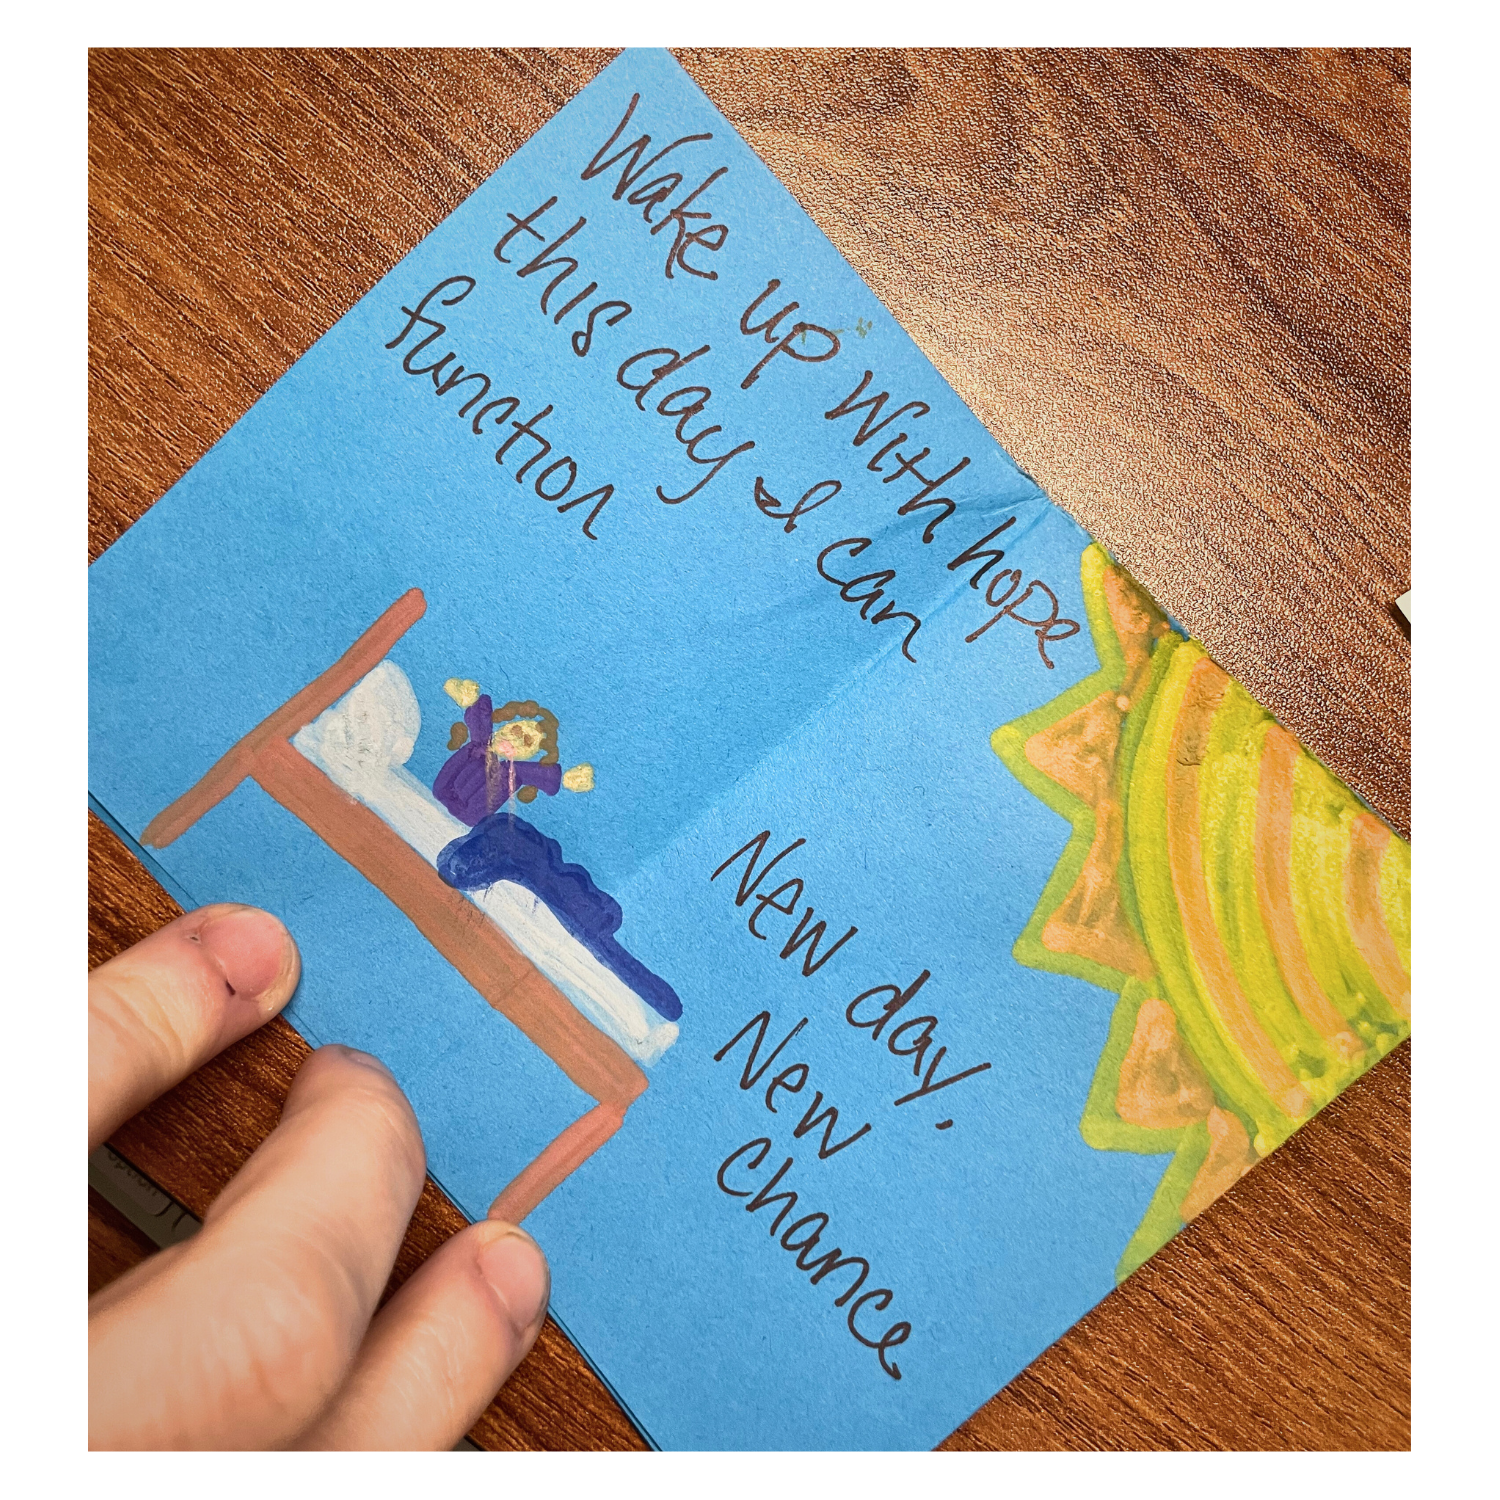 Wake up with hope
this day I can
function
New day.
New
Chance